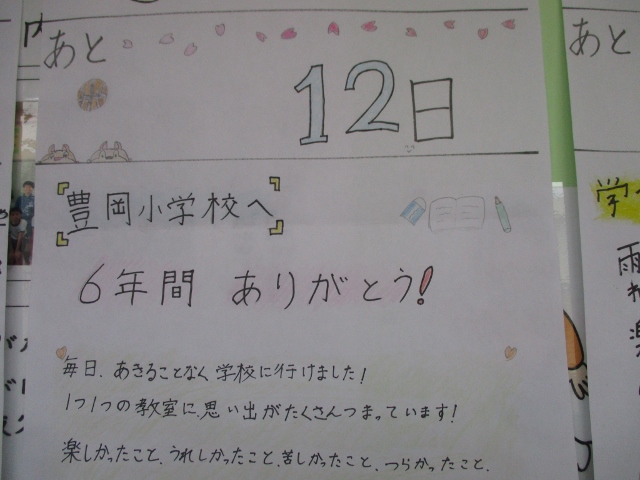 あと
12日
豊岡小学校へ
6年間 ありがとう!
毎日、あきることなく学校に行けました!
1つ1つの教室に、思い出がたくさんつまっています!
楽しかったこと、うれしかったこと、苦しかったこと、つらかったこと、
あと
学
雨